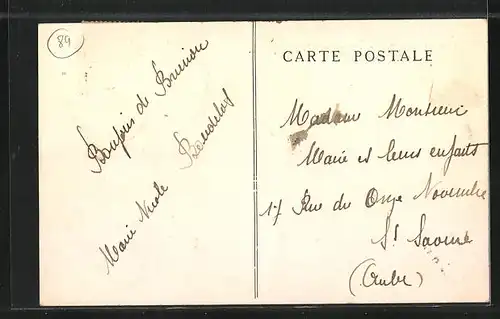 89
Bonjour de Brienon
Marie Nicole
CARTE POSTALE
Madame Monsieur
Marie et leurs enfants
17 Rue du Onze Novembre
St Savine
(Aube)